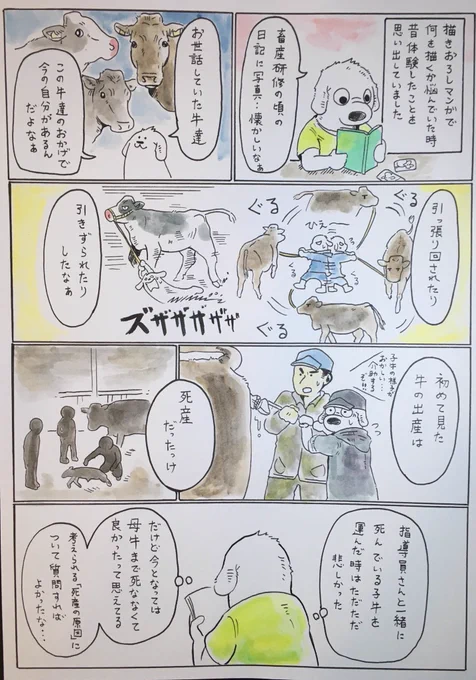 描きおろしマンガで
何を描くか悩んでいた時
昔体験したことを
思い出していました
畜産研修の頃の
日記に写真…懐かしいなぁ
お世話していた牛達
この牛達のおかげで
今の自分があるん
だよなぁ
引っ張り回されたり
ぐる
ぐる
ぐる
ひえ〜
引きずられたり
したなぁ
ズザザザザザ
初めて見た
牛の出産は
子牛の様子が
おかしい…
介助する
ぞ!!
死産
だったっけ
指導員さんと一緒に
死んでいる子牛を
運んだ時はただただ
悲しかった
だけど今となっては
母牛まで死ななくて
良かったって思えてる
考えられる「死産の原因」に
ついて質問すれば
よかったな…